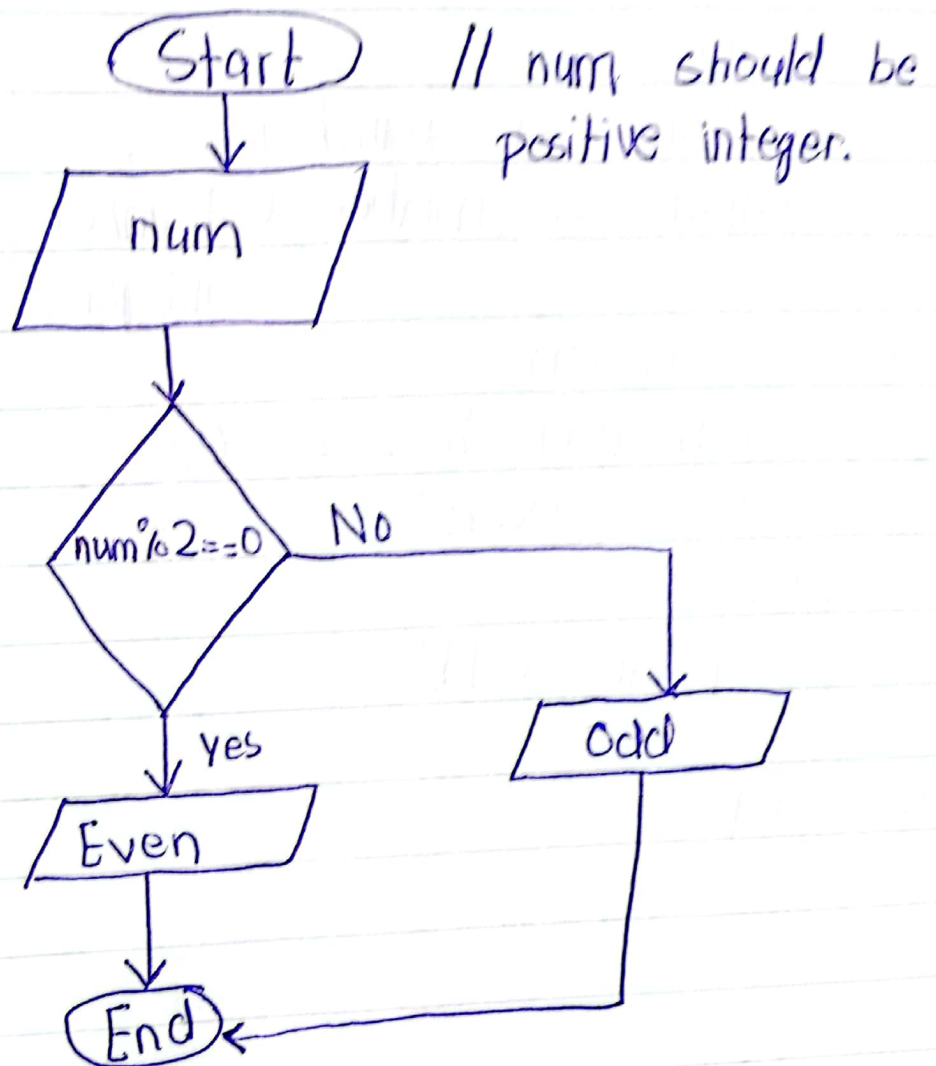 Start
// num should be
positive integer.
num
num%2==0
No
yes
odd
Even
End